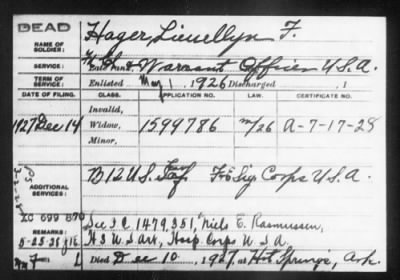 DEAD
NAME OF SOLDIER: Hager, Liewellyn F.
SERVICE: Warrant Officer U.S.A.
TERM OF SERVICE: Enlisted May 1, 1926 Discharged , 1
DATE OF FILING. CLASS. APPLICATION NO. LAW. CERTIFICATE NO.
Invalid,
1927 Dec 14 Widow, 1599786 A-7-17-28
Minor,
ADDITIONAL SERVICES: B 12 U.S. Sig Corps U.S.A.
XC 699 870
REMARKS: See 1479,351, Niels E. Rasmussen,
5-25-38 Hosp. Corps U S A
Died Dec 10, 1927, at Hot Springs, Ark.